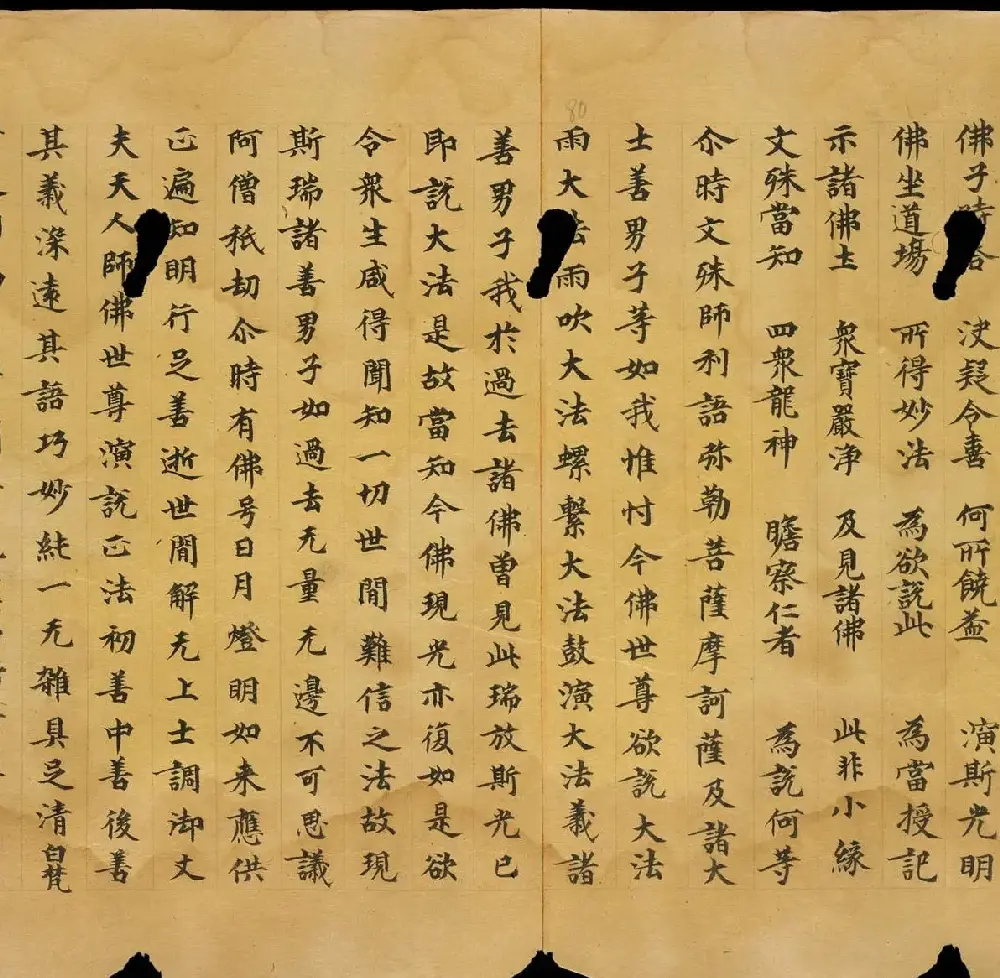 佛子時答 決疑令喜 何所饒益 演斯光明
佛坐道場 所得妙法 為欲說此 為當授記
示諸佛土 衆寶嚴淨 及見諸佛 此非小緣
文殊當知 四衆龍神 瞻察仁者 為說何等
尒時文殊師利語弥勒菩薩摩訶薩及諸大
士善男子等如我惟忖今佛世尊欲說大法
80
雨大法雨吹大法螺擊大法鼓演大法義諸
善男子我於過去諸佛曾見此瑞放斯光已
即說大法是故當知今佛現光亦復如是欲
令衆生咸得聞知一切世間難信之法故現
斯瑞諸善男子如過去无量无邊不可思議
阿僧秖劫尒時有佛号日月燈明如来應供
正遍知明行足善逝世間解无上士調御丈
夫天人師佛世尊演說正法初善中善後善
其義深遠其語巧妙純一无雜具足清白梵